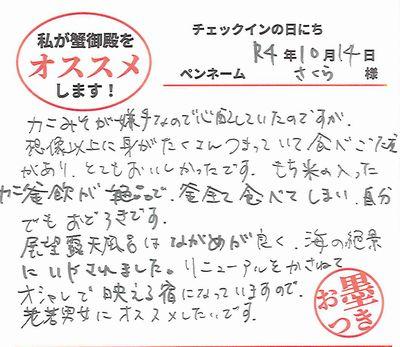 私が蟹御殿を
オススメ
します！
チェックインの日にち
R4年10月14日
ペンネーム さくら 様
カニみそが嫌いなので心配していたのですが、
想像以上に身がたくさんつまっていて食べごたえ
があり、とてもおいしかったです。もち米の入った
カニ釜飯が絶品で、釜全て食べてしまい、自分
でもおどろきです。
展望露天風呂はながめが良く、海の絶景
にいやされました。リニューアルをかさねて
オシャレで映える宿になっていますので、
老若男女にオススメしたいです。
お墨つき